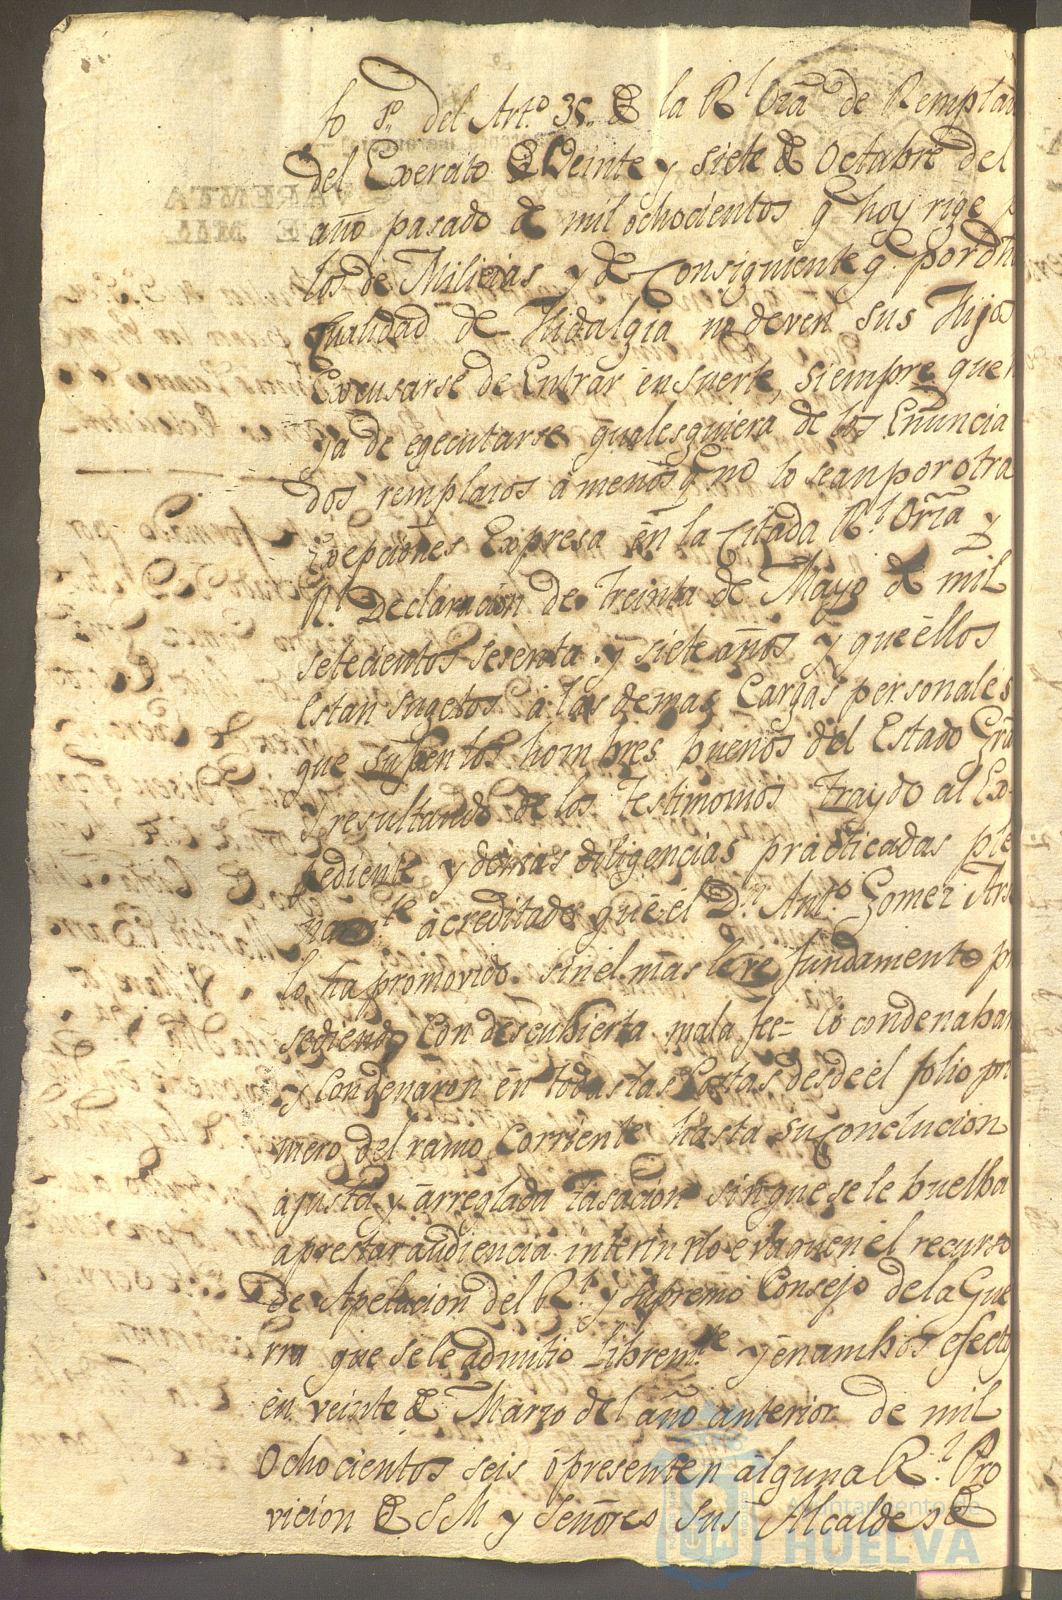 fo 8º. del Artº. 35. de la Rl Orã de Remplazo
del Exercito de Veinte y siete de Octubre del
año pasado de mil ochocientos q hoy rige p
los de Milicias y de Consiguiente q. por dha
Cualidad de Hidalgia no deven sus Hijos
Excusarse de Entrar en suerte, siempre que h
ya de egecutarse qualesquiera de los Enuncia
dos remplazos a menos q no lo sean por otra
Excepciones Expresa en la Citada Rl. Orña y
Rl. Declaracion de treinta de Mayo de mil
setecientos sesenta y siete años y que ellos
Estan sugetos a las demas Cargas personales
que sufren los hombres buenos del Estado Grã
y resultando de los testimonios traydo al Ex-
pediente y demas diligencias practicadas ple
namte. acreditado que el Dn. Antº. Gomez Ars
lo ha promovido sin el mas leve fundamento pro
sediendo Con descubierta mala fee= lo condenaban
y Condenaron en todas las Costas desde el folio pri
mero del ramo Corriente hasta su Conclucion
a justa y arreglada tasacion sin que se le buelba
a prestar audiencia interin no evaquen el recurso
de Apelacion del Rl. y Supremo Consejo de la Gue
rra que se le admitio Libremte. y en ambos efectos
en veinte de Marzo del año anterior de mil
Ochocientos seis o presenten alguna Rl. Pro
vicion de S M y Señores Sus Alcaldes de
Ayuntamiento de
HUELVA